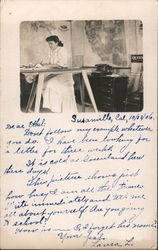 Susanville, Cal, 10/23/06.
Dear Ethel:
Don't follow my example whatever
you do. I have been looking for
a letter for three weeks.
It is cold as Greenland here
these days.
This picture shows just
how busy I am all the time.
Write immediately and tell me
all about yourself. Are you going
to school?
How is
Yours
Laura L.